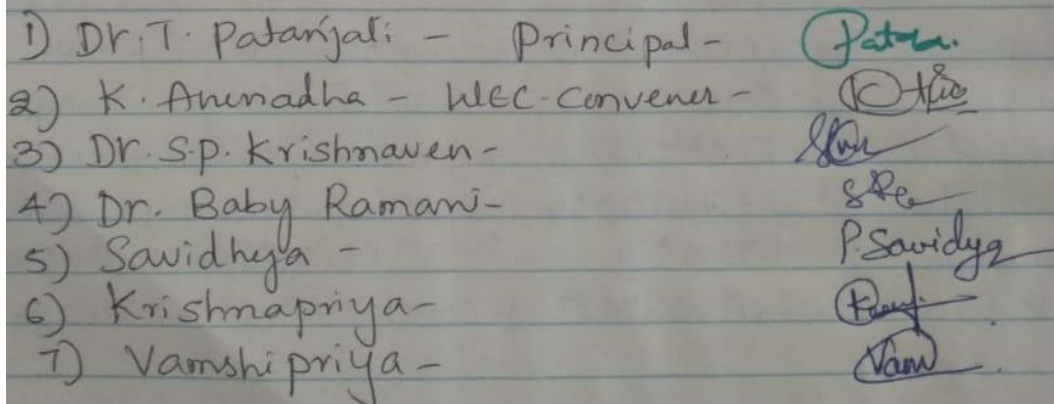 1) Dr. T. Patanjali - Principal -
2) K. Anuradha - WEC - Convener -
3) Dr. S.P. Krishnaven -
4) Dr. Baby Ramani -
5) Savidhya - P. Savidya
6) Krishnapriya -
7) Vamshi priya - Vam